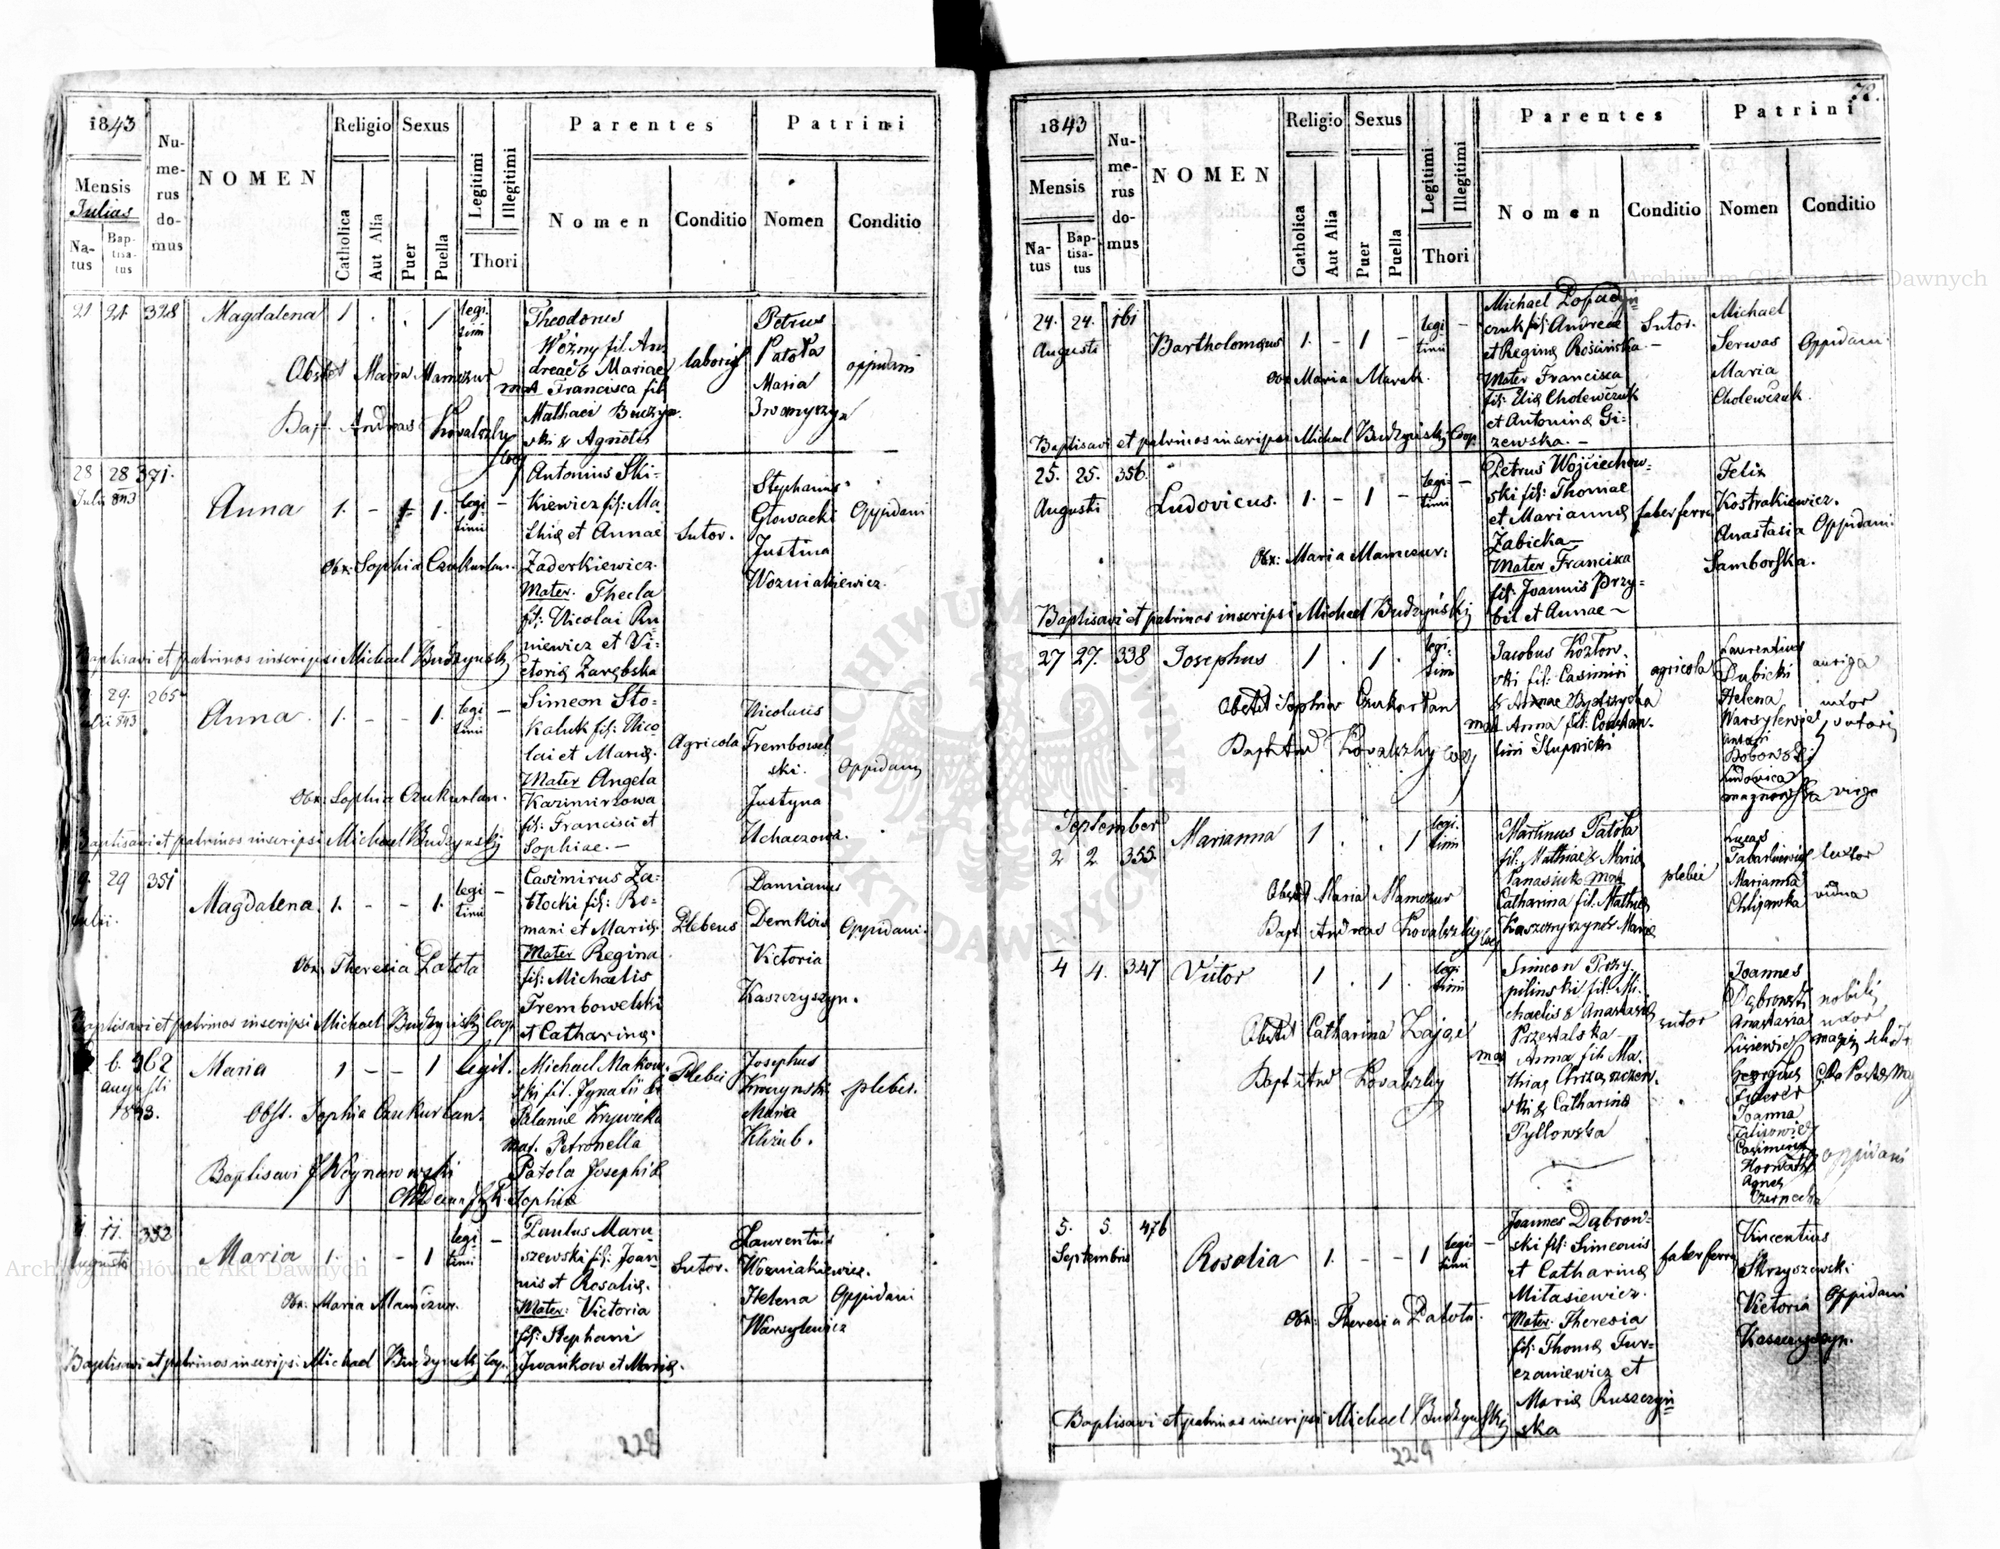 1843
Mensis
Julias
Natus
Baptisatus
Numerus domus
NOMEN
Religio
Catholica
Aut Alia
Sexus
Puer
Puella
Legitimi
Illegitimi
Thori
Parentes
Nomen
Conditio
Patrini
Nomen
Conditio
21 21 328 Magdalena 1 . . 1 legi-
timi
Theodorus
Wozny fil. An
dreae & Mariae
mat Francisca fil.
Mathaei Budzyn
ski & Agnetis
Petrus
Patoła
Maria
Iwanyszyn
oppidani
Obstet Maria Mamczur
Bapt. Andreas Kowalszky
28 28 371.
Julii 843
Anna 1. – 1 1. legi
timi
Antonius Ski-
kiewicz fil: Ma-
thiæ et Annae
Zaderkiewicz.
Mater. Thecla
fil: Nicolai Ru
niewicz et Vi-
ctoriæ Zarębska
Sutor.
Stephanus
Głowacki
Justina
Wozniakiewicz.
Oppidani
Obx. Sophia Czukurlan.
Baptisavi et patrinos inscripsi Michael Budzynski
29. 265
Anna. 1. – – 1. legi
timi
Simeon Sto-
kaluk fil: Nico
lai et Mariæ.
Mater Angela
Kazimirzowa
fil: Francisci et
Sophiae. –
Agricola
Nicolaus
Trembowel
ski.
Justyna
Uchaczowa.
Oppidani
Obx: Sophia Czukurlan.
Baptisavi et patrinos inscripsi Michael Budzynski
29 351
Julii.
Magdalena. 1. – – 1. legi
timi
Casimirus Za-
błocki fil: Ro-
mani et Mariæ.
Mater Regina
fil: Michaelis
Trembowelski
et Catharinæ.
Plebeus
Damianus
Demkow
Victoria
Kaszczyszyn.
Oppidani.
Obx. Theresia Patoła
Baptisavi et patrinos inscripsi Michael Budzynski Coop
6. 362
augusti
1843.
Maria 1 – – 1 legit.
Michael Makow-
ski fil. Ignatii et
mat. Petronella
Patola Josephi &
Sophiæ
Plebei
Josephus
Maria
plebei.
Obst. Sophia Czukurlan.
Baptisavi J Woynarowski
11. 352
Augusti
Maria 1. – 1 legi-
timi
Paulus Maru
szewski fil: Joan
nis et Rosaliæ.
Mater: Victoria
fil: Stephani
Iwańkow et Mariæ.
Sutor.
Laurentius
Wozniakiewicz.
Helena
Warsylewicz
Oppidani
Obx: Maria Mamczur.
Baptisavi et patrinos inscripsi Michael Budzynski Cop.
228
72.
1843
Mensis
Natus
Baptisatus
Numerus domus
NOMEN
Religio
Catholica
Aut Alia
Sexus
Puer
Puella
Legitimi
Illegitimi
Thori
Parentes
Nomen
Conditio
Patrini
Nomen
Conditio
24. 24. 161
Augusti
Bartholomæus 1. – 1 – legi
timi
Michael Łopady
czuk fil: Andreae
et Reginæ Rosińska –
Mater Francisca
fil: Eliæ Cholewczuk
et Antoninæ Gi-
zewska. –
Sutor.
Michael
Serwas
Maria
Cholewczuk.
Oppidani.
Obx Maria Marak.
Baptisavi et patrinos inscripsi Michael Budzynski Coop.
25. 25. 356.
Augusti
Ludovicus. 1. – 1 – legi-
timi
Petrus Wojciechow-
ski fil: Thomae
et Mariannæ
Zabicka –
Mater Francisca
fil: Joannis Przy-
bił et Annae –
faber ferra
Felix
Kostrakiewicz.
Anastasia
Samborska.
Oppidani.
Obx: Maria Mamczur.
Baptisavi et patrinos inscripsi Michael Budzyński
27 27. 338 Josephus 1 . 1 . legi-
timi
Jacobus Kozłow-
ski fil: Casimiri
mat Anna fil: Constan-
tini Słupnicki
agricola
Laurentius
Dubicki
Helena
Warsylewicz
Antoni
Bobowski
Ludovica
auriga
uxor
sutoris
virgo
Obstet Sophia Czukurlan
Bapt And Kowalszky Coop
September
2 2. 355. Marianna 1 . . 1 legi-
timi
Martinus Patoła
fil: Mathiae & Mariæ
Panasiuk mat
Catharina fil. Mathiæ
plebei
Lucas
Marianna
vidua
Obstet Maria Mamczur
Bapt Andreas Kowalszky Coop
4 4. 347 Victor 1 . 1 . legi
timi
Simeon Przy
pilinski fil. Mi-
chaelis & Anastasiæ
Przewalska
mat Anna fil. Ma-
thiae Chrzanczew-
ski & Catharinæ
Pyllowska
sutor
Joannes
Dąbrowski
Anastasia
Georgius
Joanna
Casimirus
Agnes
nobilis
uxor
oppidani
Obstet Catharina Zając
Bapt And Kowalszky
5. 5. 476
Septembris
Rosalia 1. – – 1 legi
timi
Joannes Dąbrow-
ski fil: Simeonis
et Catharinæ
Miłasiewicz.
Mater: Theresia
fil: Thomæ Tur-
czaniewicz et
Mariæ Ruszczyń
ska
faber ferra
Vincentius
Skrzyszewski
Victoria
Kaszczyszyn.
Oppidani
Obx: Theresia Patoła.
Baptisavi et patrinos inscripsi Michael Budzynski
229
Archiwum Główne Akt Dawnych
Archiwum Główne Akt Dawnych
ARCHIWUM GŁÓWNE
AKT DAWNYCH